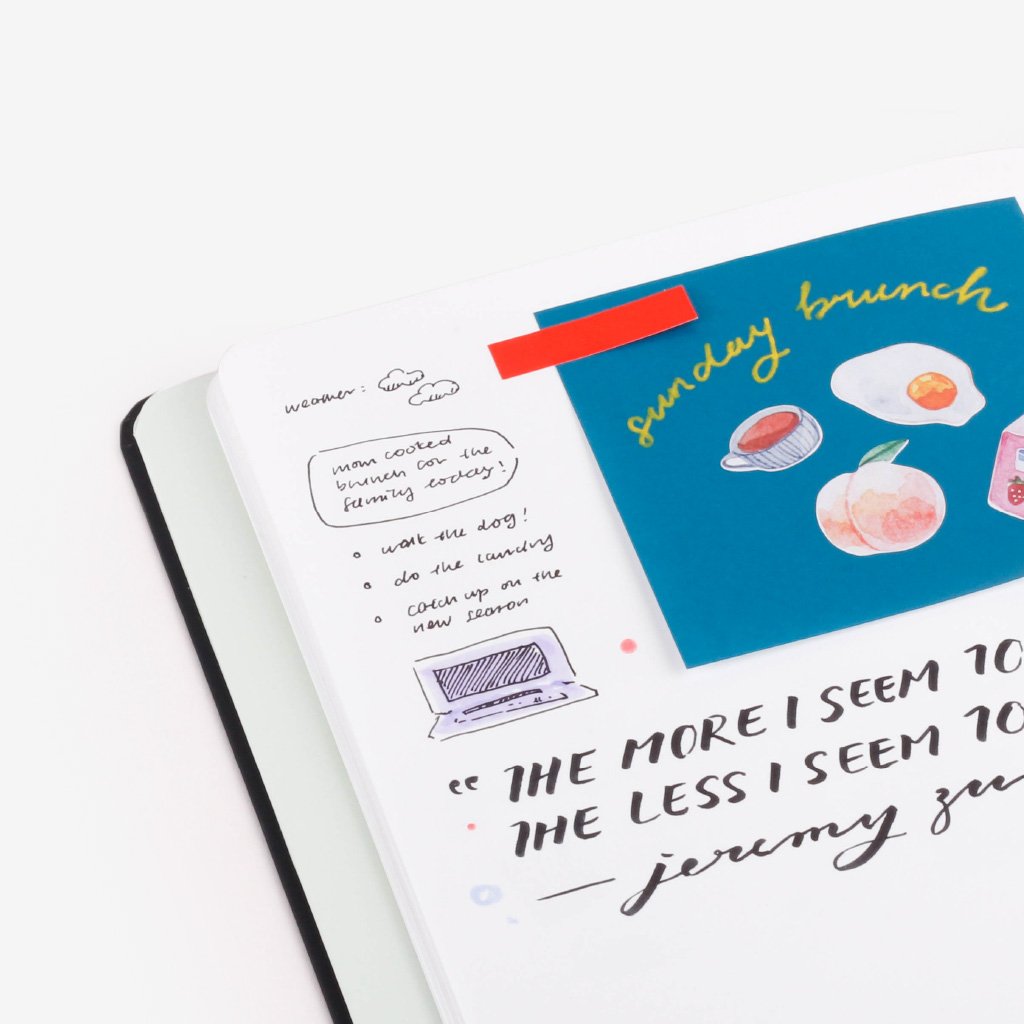 sunday brunch
weather:
mom cooked
brunch for the
family today!
walk the dog!
do the laundry
catch up on the
new season
“ THE MORE I SEEM TO
THE LESS I SEEM TO
— jeremy zu